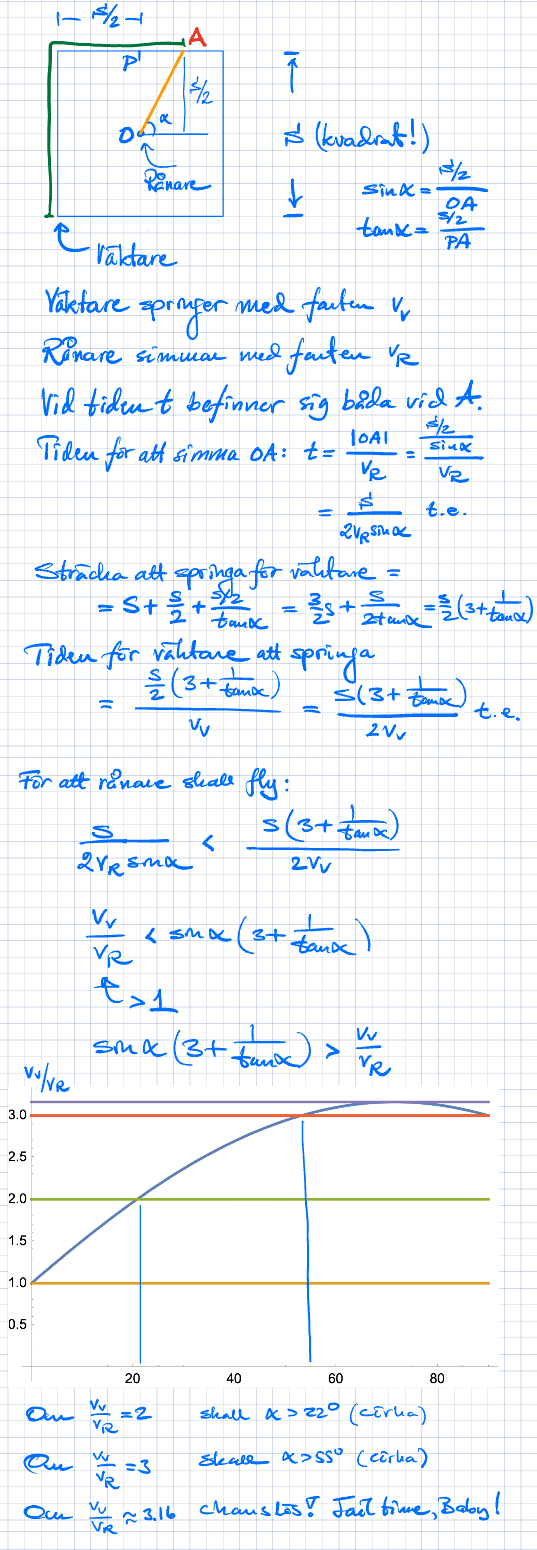 |— s/2 —|
A
P
s/2
O
α
Rånare
s (kvadrat!)
sinα = s/2 / OA
tanα = s/2 / PA
Väktare
Väktare springer med farten v_v
Rånare simmar med farten v_R
Vid tiden t befinner sig båda vid A.
Tiden för att simma OA: t = |OA| / v_R = (s/2 / sinα) / v_R
= s / 2v_R sinα t.e.
Sträcka att springa för väktare =
= s + s/2 + s/2 / tanα = 3/2 s + s / 2tanα = s/2 (3 + 1/tanα)
Tiden för väktare att springa
= s/2 (3 + 1/tanα) / v_v = s(3 + 1/tanα) / 2v_v t.e.
För att rånare skall fly:
s / 2v_R sinα < s(3 + 1/tanα) / 2v_v
v_v / v_R < sinα (3 + 1/tanα)
> 1
sinα (3 + 1/tanα) > v_v / v_R
v_v/v_R
3.0
2.5
2.0
1.5
1.0
0.5
20 40 60 80
Om v_v/v_R = 2 skall α > 22° (cirka)
Om v_v/v_R = 3 skall α > 55° (cirka)
Om v_v/v_R ≈ 3.16 chanslös! Jail time, Baby!